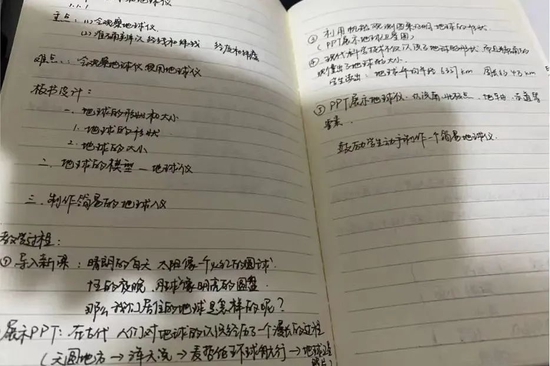 地球仪
重点:(1)会观察地球仪
(2)准确判读经线和纬线 经度和纬度
难点:会观察地球仪 使用地球仪
板书设计:
一、地球的形状和大小
1.地球的形状
2.地球的大小
二、地球的模型—地球仪
三、制作简易的地球仪
教学过程:
① 导入新课:晴朗的白天 太阳像一个火红的圆球
的夜晚,月球像明亮的圆盘
那么我们居住的地球是怎样的呢?
展示PPT:在古代 人们对地球的认识经历了一个漫长的过程
(天圆地方→浑天说→麦哲伦环球航行→地球
② 利用帆船观测图来说明地球的形状
(PPT展示地球卫星图)
现代科学技术不仅认识了地球的形状 而且
测量出了地球的大小。
学生读出:地球平均半径6371km 周长约4万km
③ PPT展示地球仪 认识南、北极点,地轴、赤道等
要素。
鼓励学生动手制作一个简易地球仪。